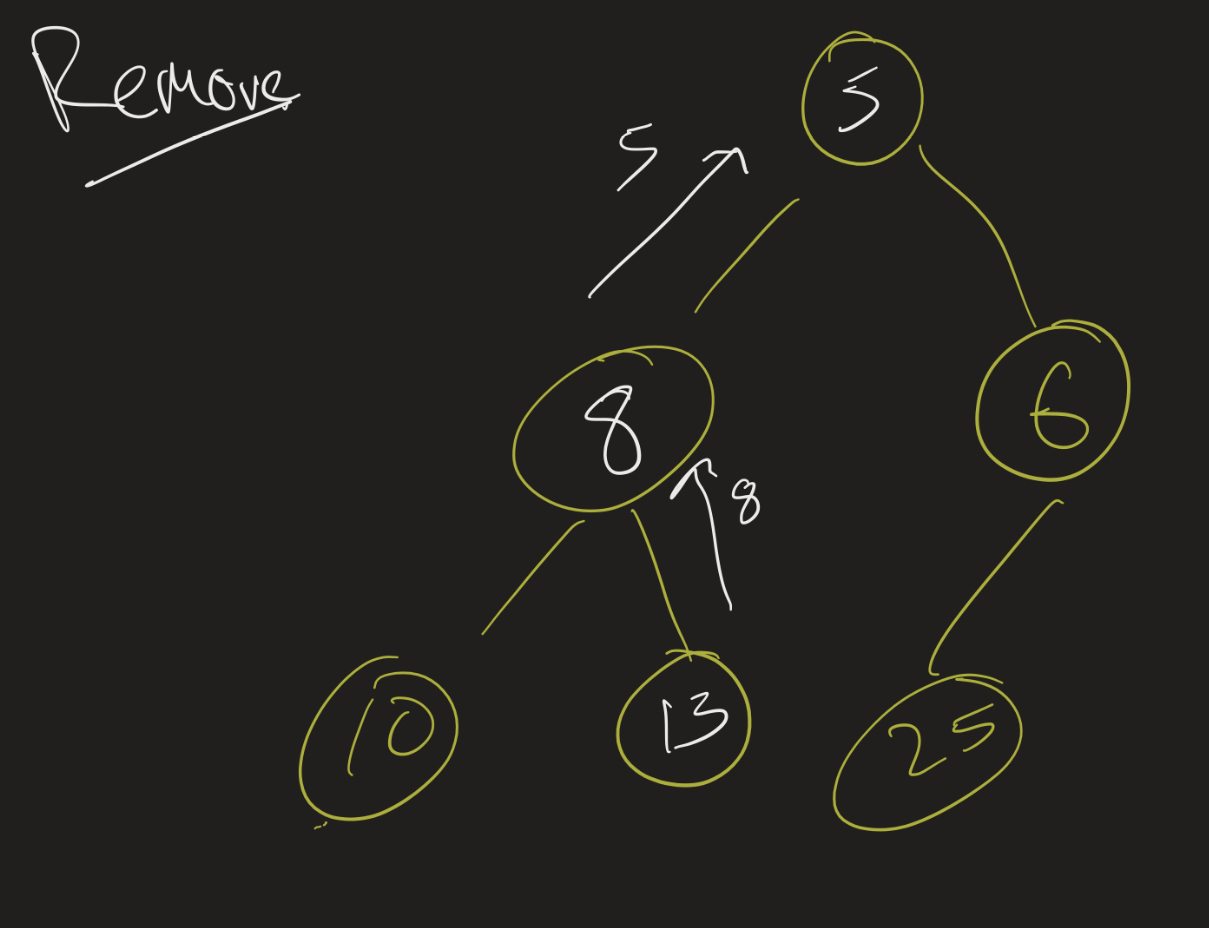 Remove
5
5
8
6
8
10
13
25